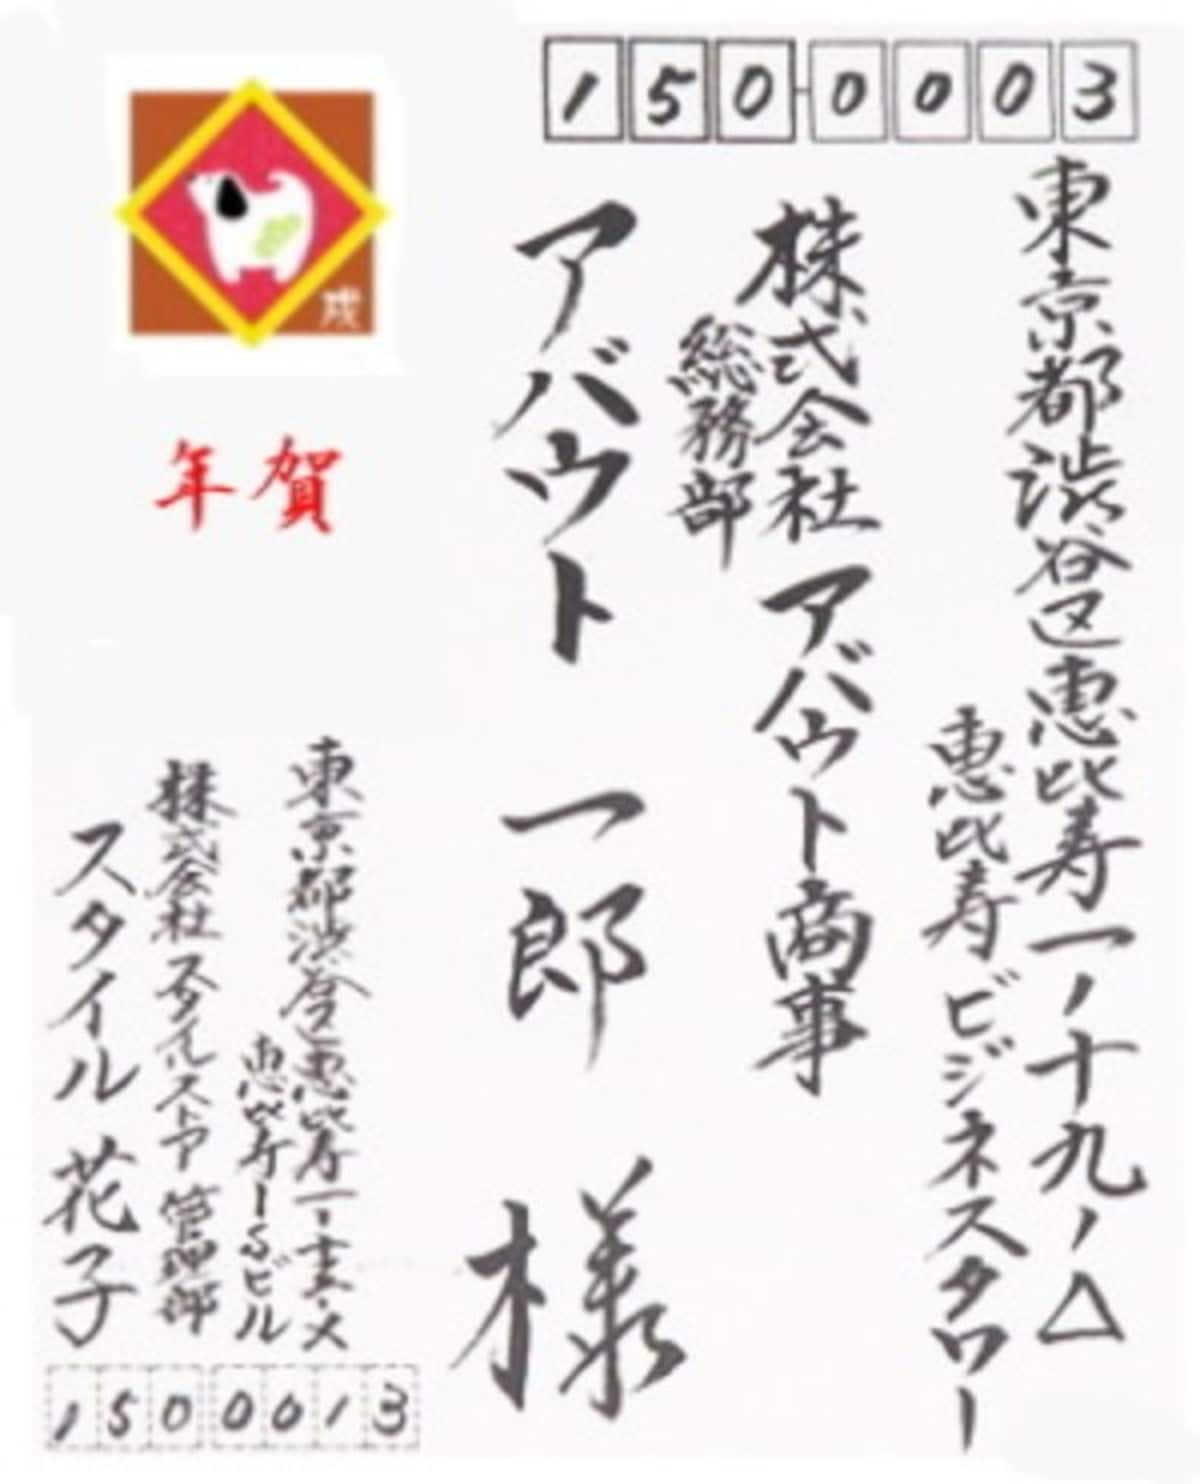 150-0003
東京都渋谷区恵比寿一ノ十九ノ△
恵比寿ビジネスタワー
株式会社 アバウト商事
総務部
アバウト 一郎 様
戌
年賀
東京都渋谷区恵比寿一
恵比寿 ビル
株式会社 スタイルストア 管理部
スタイル 花子
1500013